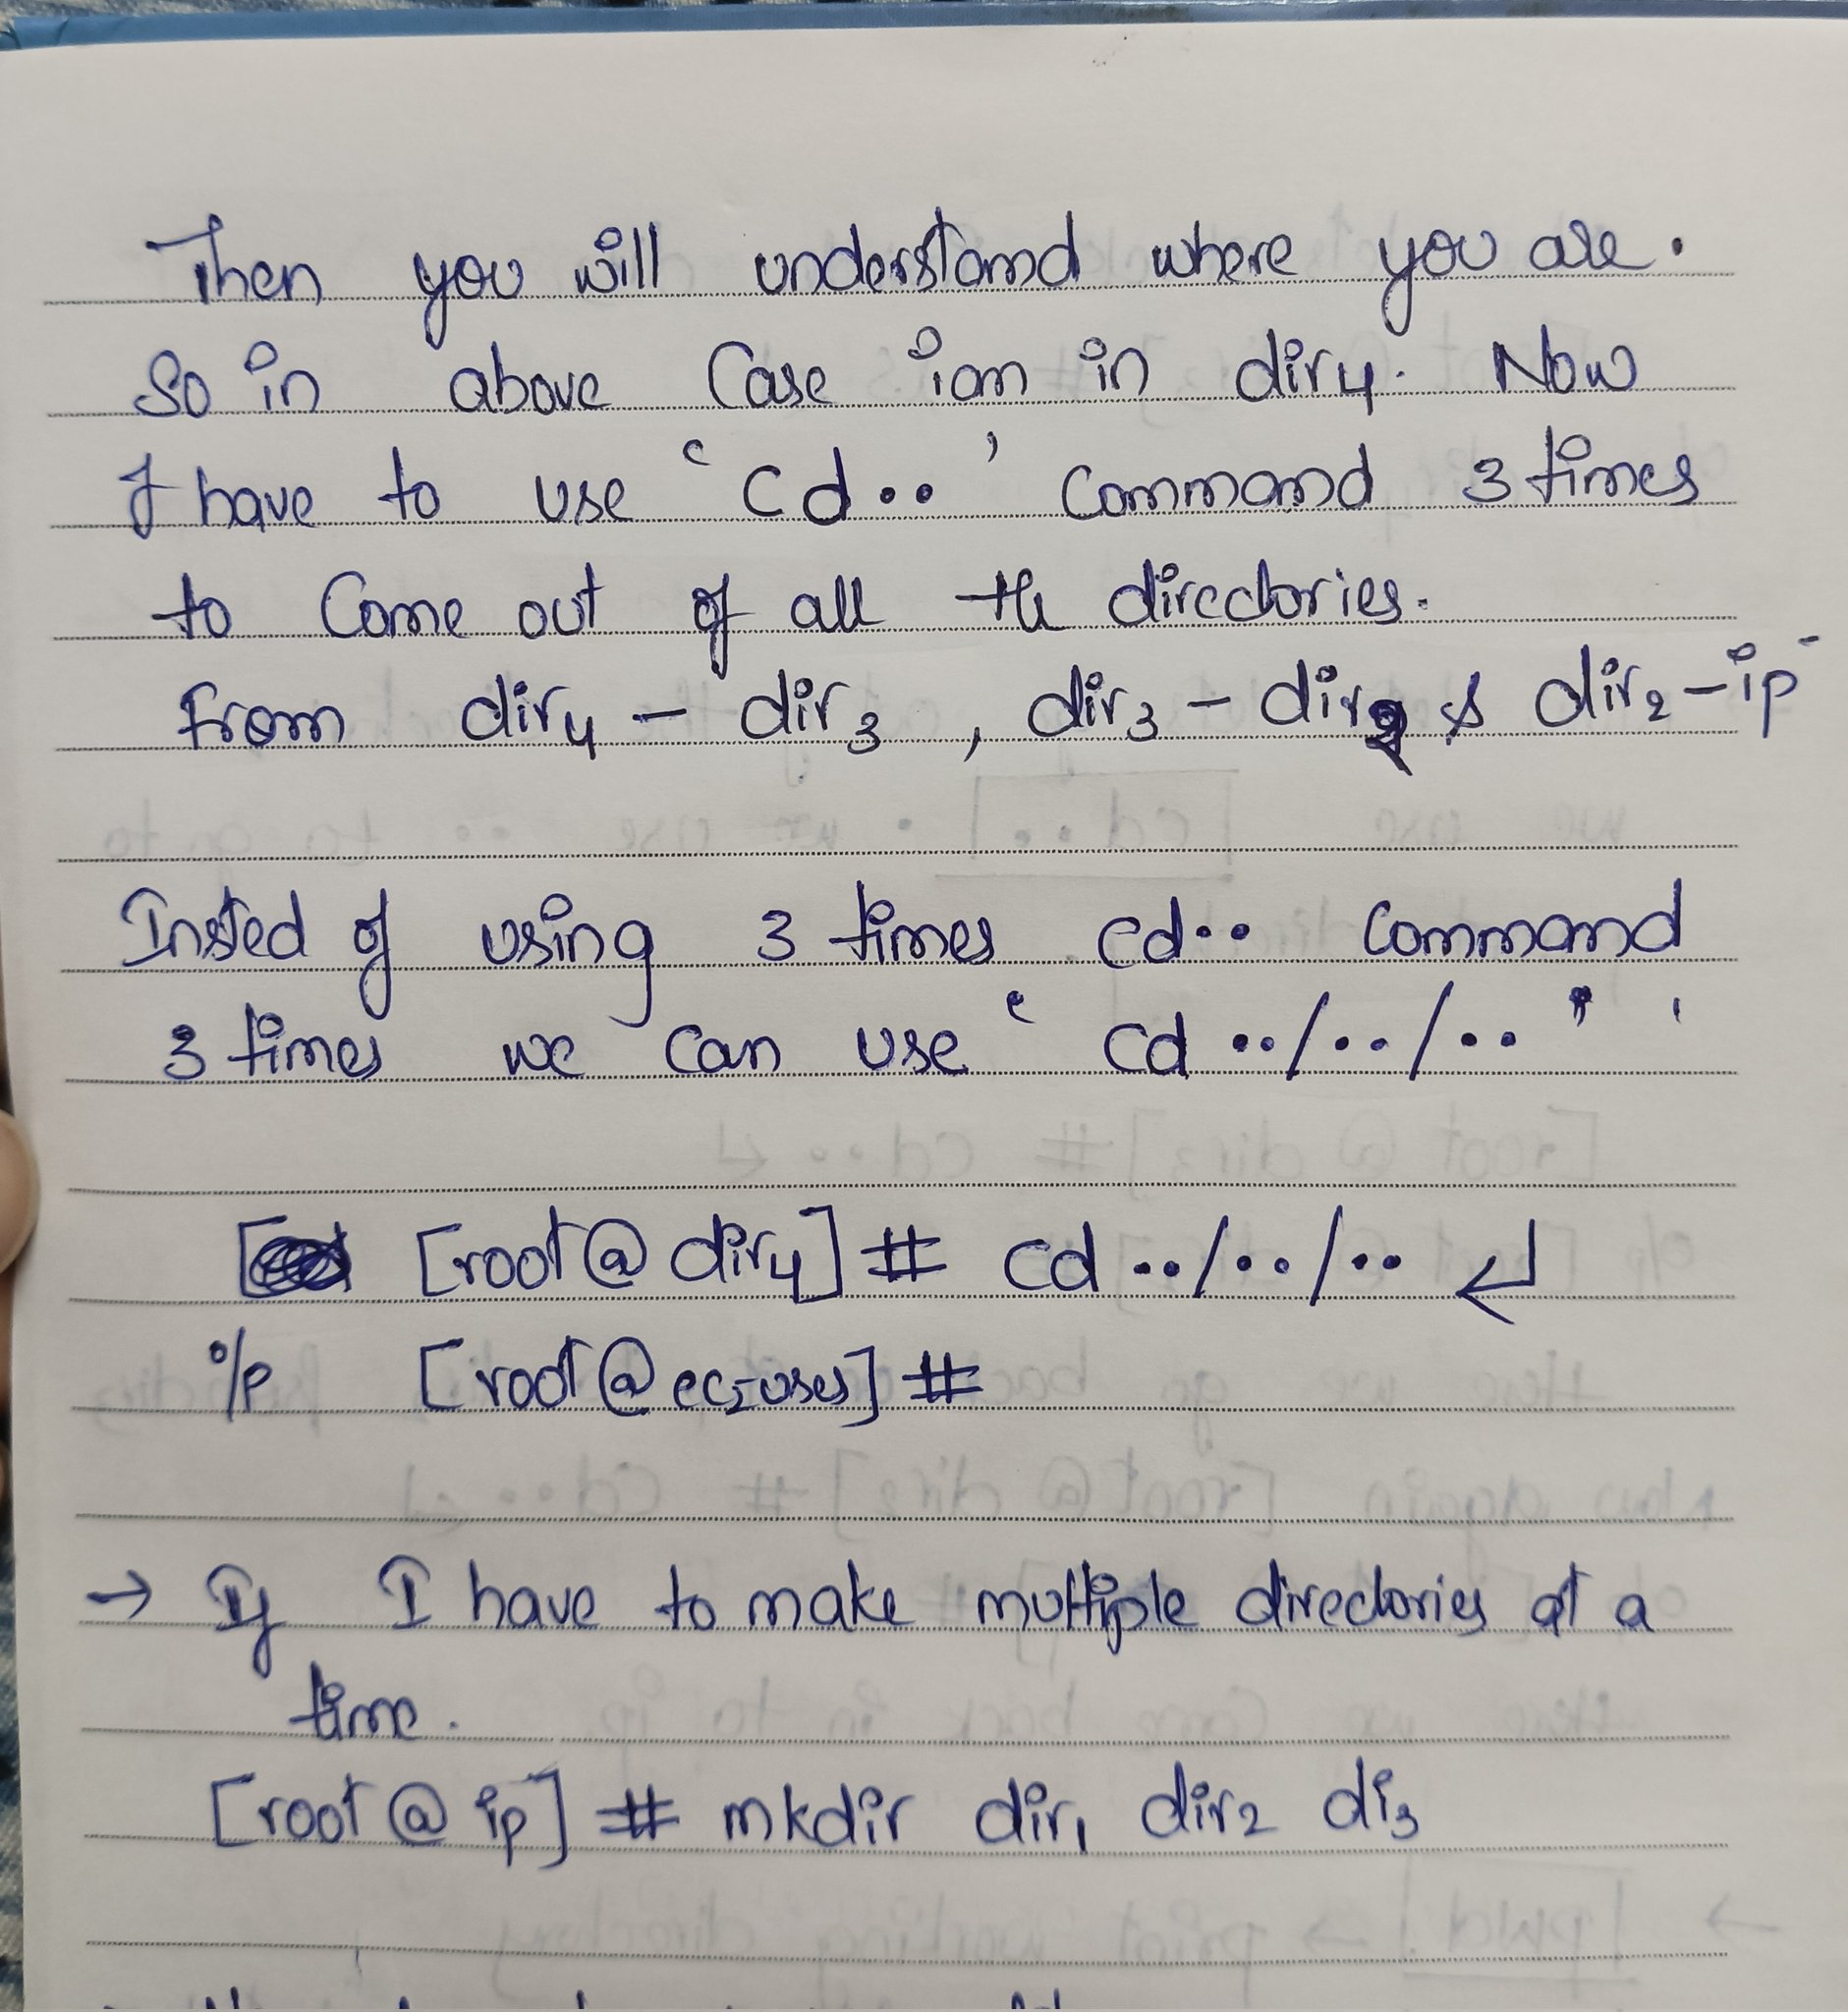 Then you will understand where you are.
So in above Case iam in dir4. Now
I have to use 'cd..' Command 3 times
to Come out of all the directories.
from dir4 - dir3, dir3 - dir2 & dir2 - ip
Insted of using 3 times cd.. Command
3 times we can use 'cd ../../..'
[root@dir4]# cd ../../.. ↵
o/p [root@ec2-user]#
→ If I have to make multiple directories at a
time.
[root@ip]# mkdir dir1 dir2 di3